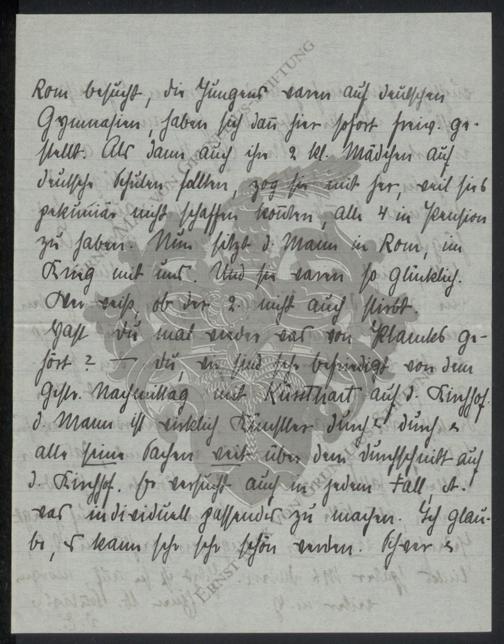 Rom besucht, die Jungens waren auf deutschen
Gymnasien, haben sich dann hier sofort freiw. ge-
stellt. Als dann auch ihr 2 kl. Mädchen auf
deutsche Schulen sollten, zog sie mit her, weil sies
pekuniär nicht schaffen konnten, alle 4 in Pension
zu haben. Nun sitzt d. Mann in Rom, im
Krieg mit uns. Und sie waren so glücklich.
Wer weiß, ob der 2. nicht auch stirbt.
Hast Du mal wieder was von Plancks ge-
hört? – Du, wir sind sehr befriedigt von dem
gestr. Nachmittag mit Kunsthart auf d. Kirchhof.
d. Mann ist wirklich Künstler durch & durch &
alle seine Sachen weit über dem Durchschnitt auf
d. Kirchhof. Er versucht auch in jedem Fall, et-
was individuell passendes zu machen. Ich glau-
be, es kann sehr sehr schön werden. Schwer &
ERNST VON GRUNELIUS-STIFTUNG